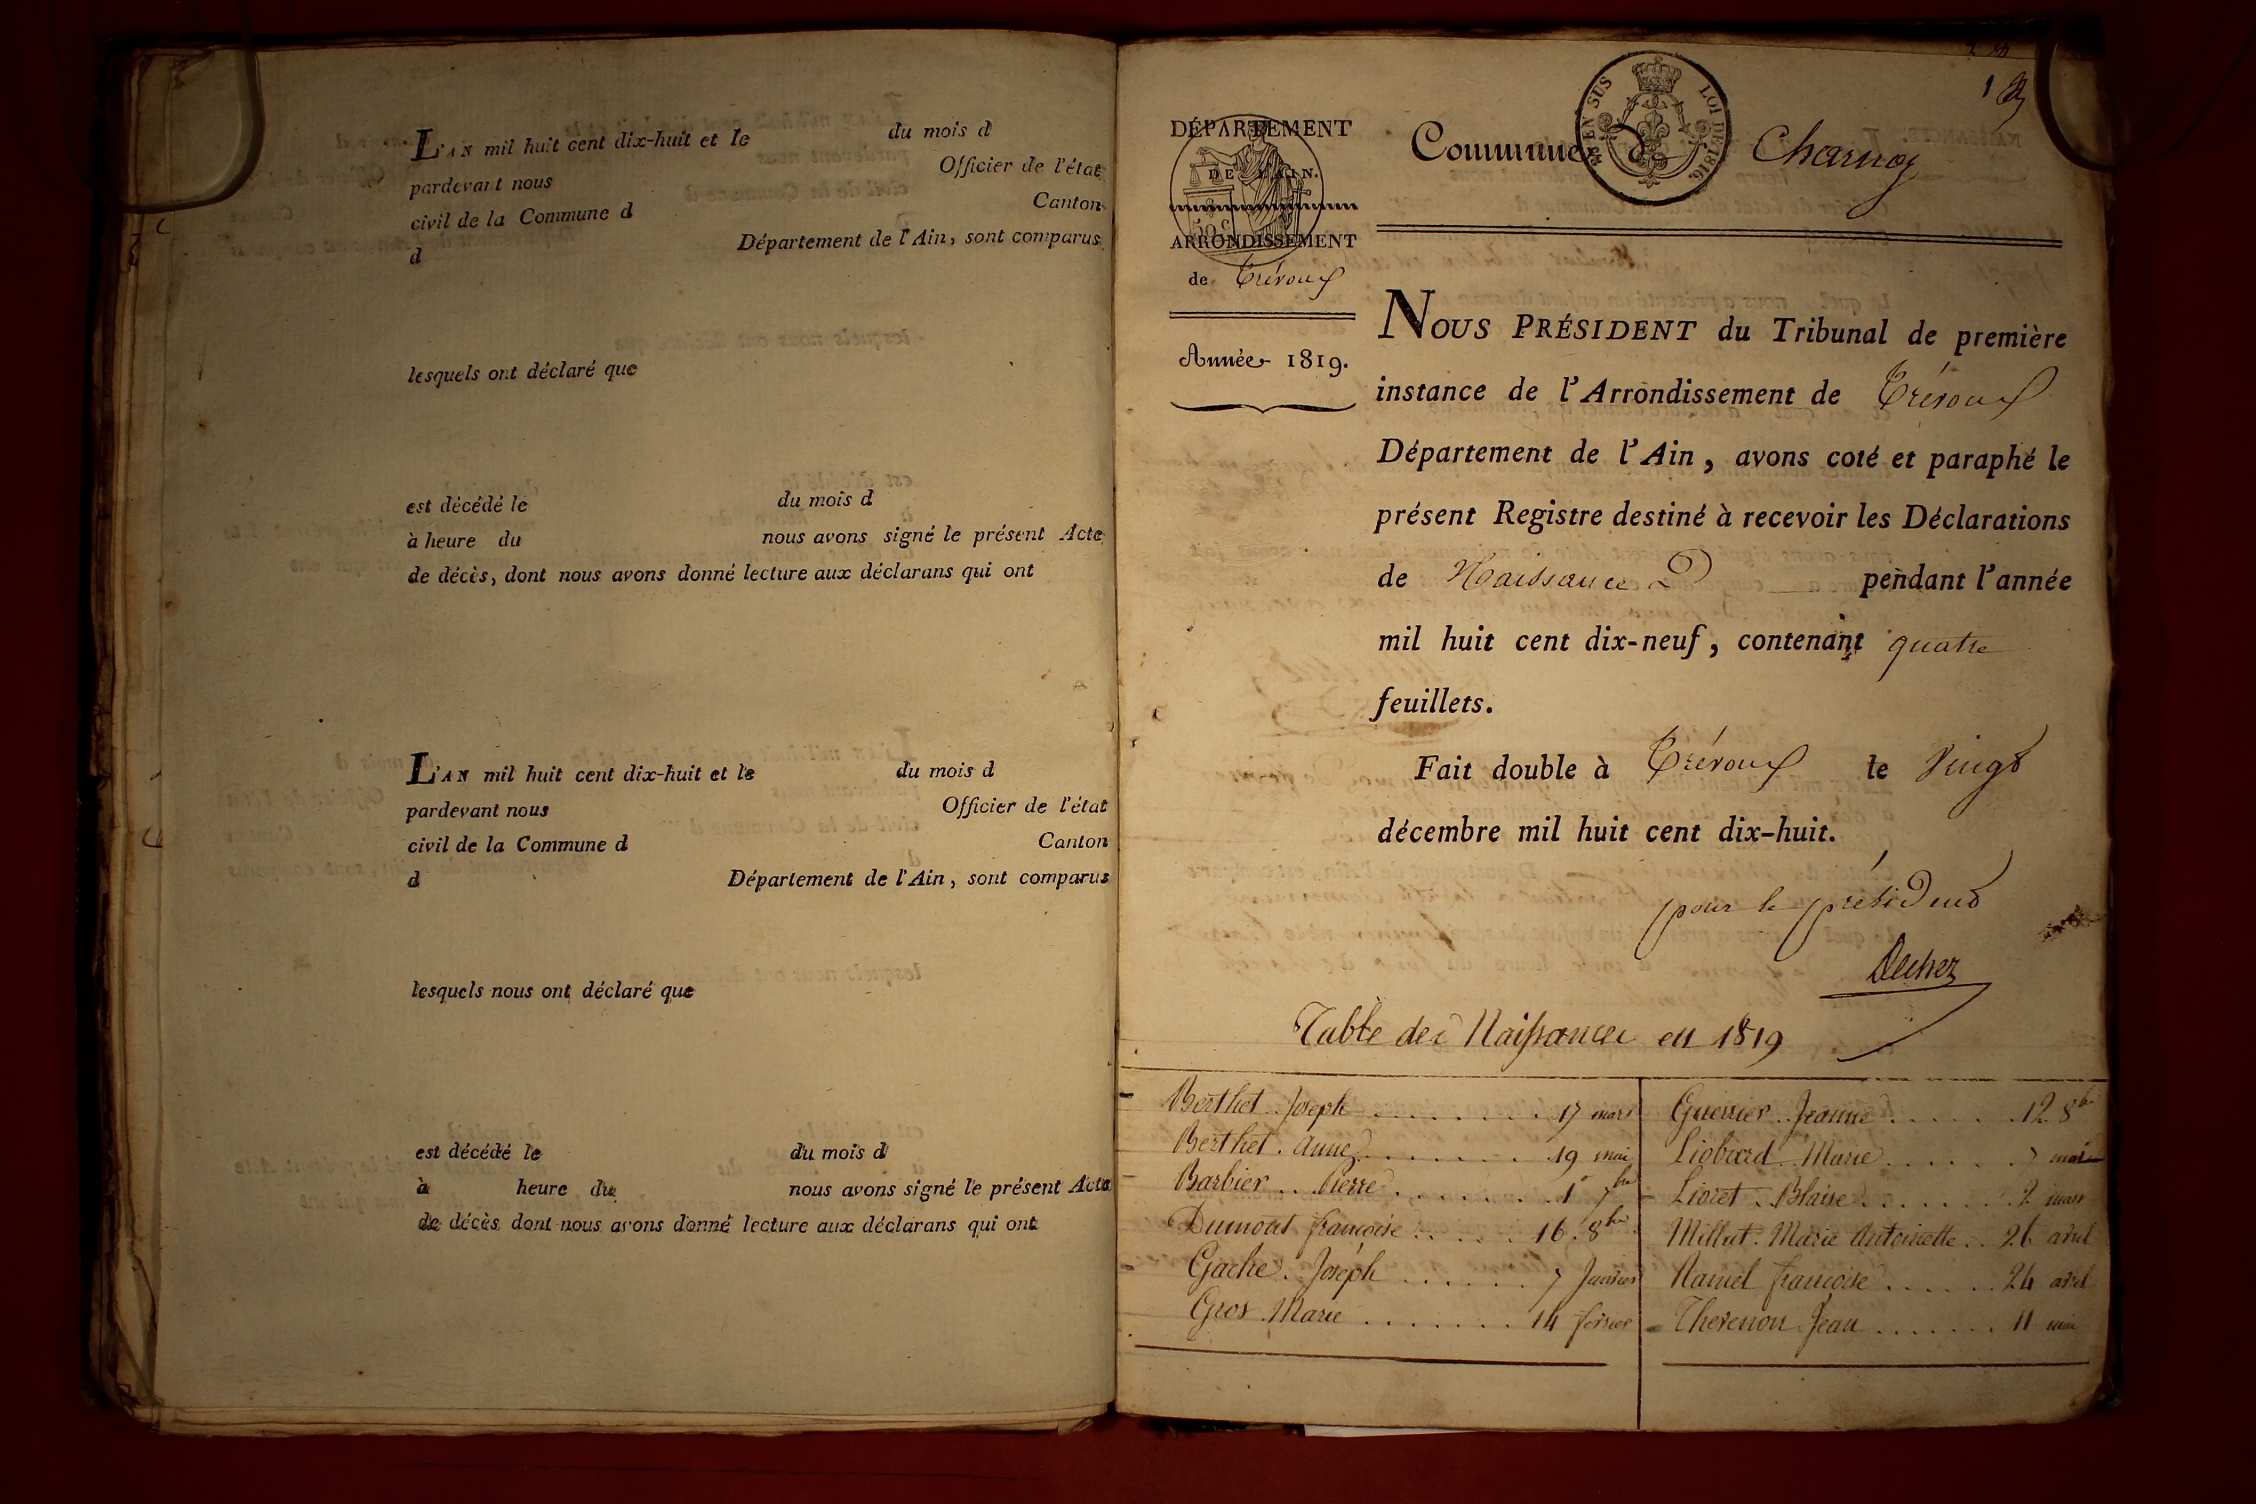 L'AN mil huit cent dix-huit et le du mois d
pardevant nous Officier de l'état
civil de la Commune d Canton
d Département de l'Ain, sont comparus
lesquels ont déclaré que
est décédé le du mois d
à heure du nous avons signé le présent Acte
de décès, dont nous avons donné lecture aux déclarans qui ont
L'AN mil huit cent dix-huit et le du mois d
pardevant nous Officier de l'état
civil de la Commune d Canton
d Département de l'Ain, sont comparus
lesquels nous ont déclaré que
est décédé le du mois d
à heure du nous avons signé le présent Acte
de décès dont nous avons donné lecture aux déclarans qui ont
1
EN SUS LOI DE 1816
DÉPARTEMENT
DE L'AIN.
50 c
ARRONDISSEMENT
de Trévoux
Année 1819.
Commune de Charnoz
NOUS PRÉSIDENT du Tribunal de première
instance de l'Arrondissement de Trévoux
Département de l'Ain, avons coté et paraphé le
présent Registre destiné à recevoir les Déclarations
de Naissance pendant l'année
mil huit cent dix-neuf, contenant quatre
feuillets.
Fait double à Trévoux le Vingt
décembre mil huit cent dix-huit.
pour le président
Table des Naissances en 1819
Berthet Joseph 17 mars
Berthet Anne 19 mai
Barbier Pierre 1er 7bre
Dumont françoise 16 8bre
Gache Joseph 7 Janvier
Gros Marie 14 fevrier
Guerrier Jeanne 12 8bre
Liobard Marie 7 mai
Livret Blaise 2 mars
Millet Marie Antoinette 26 avril
françoise 24 avril
Thevenon Jean 11 mai